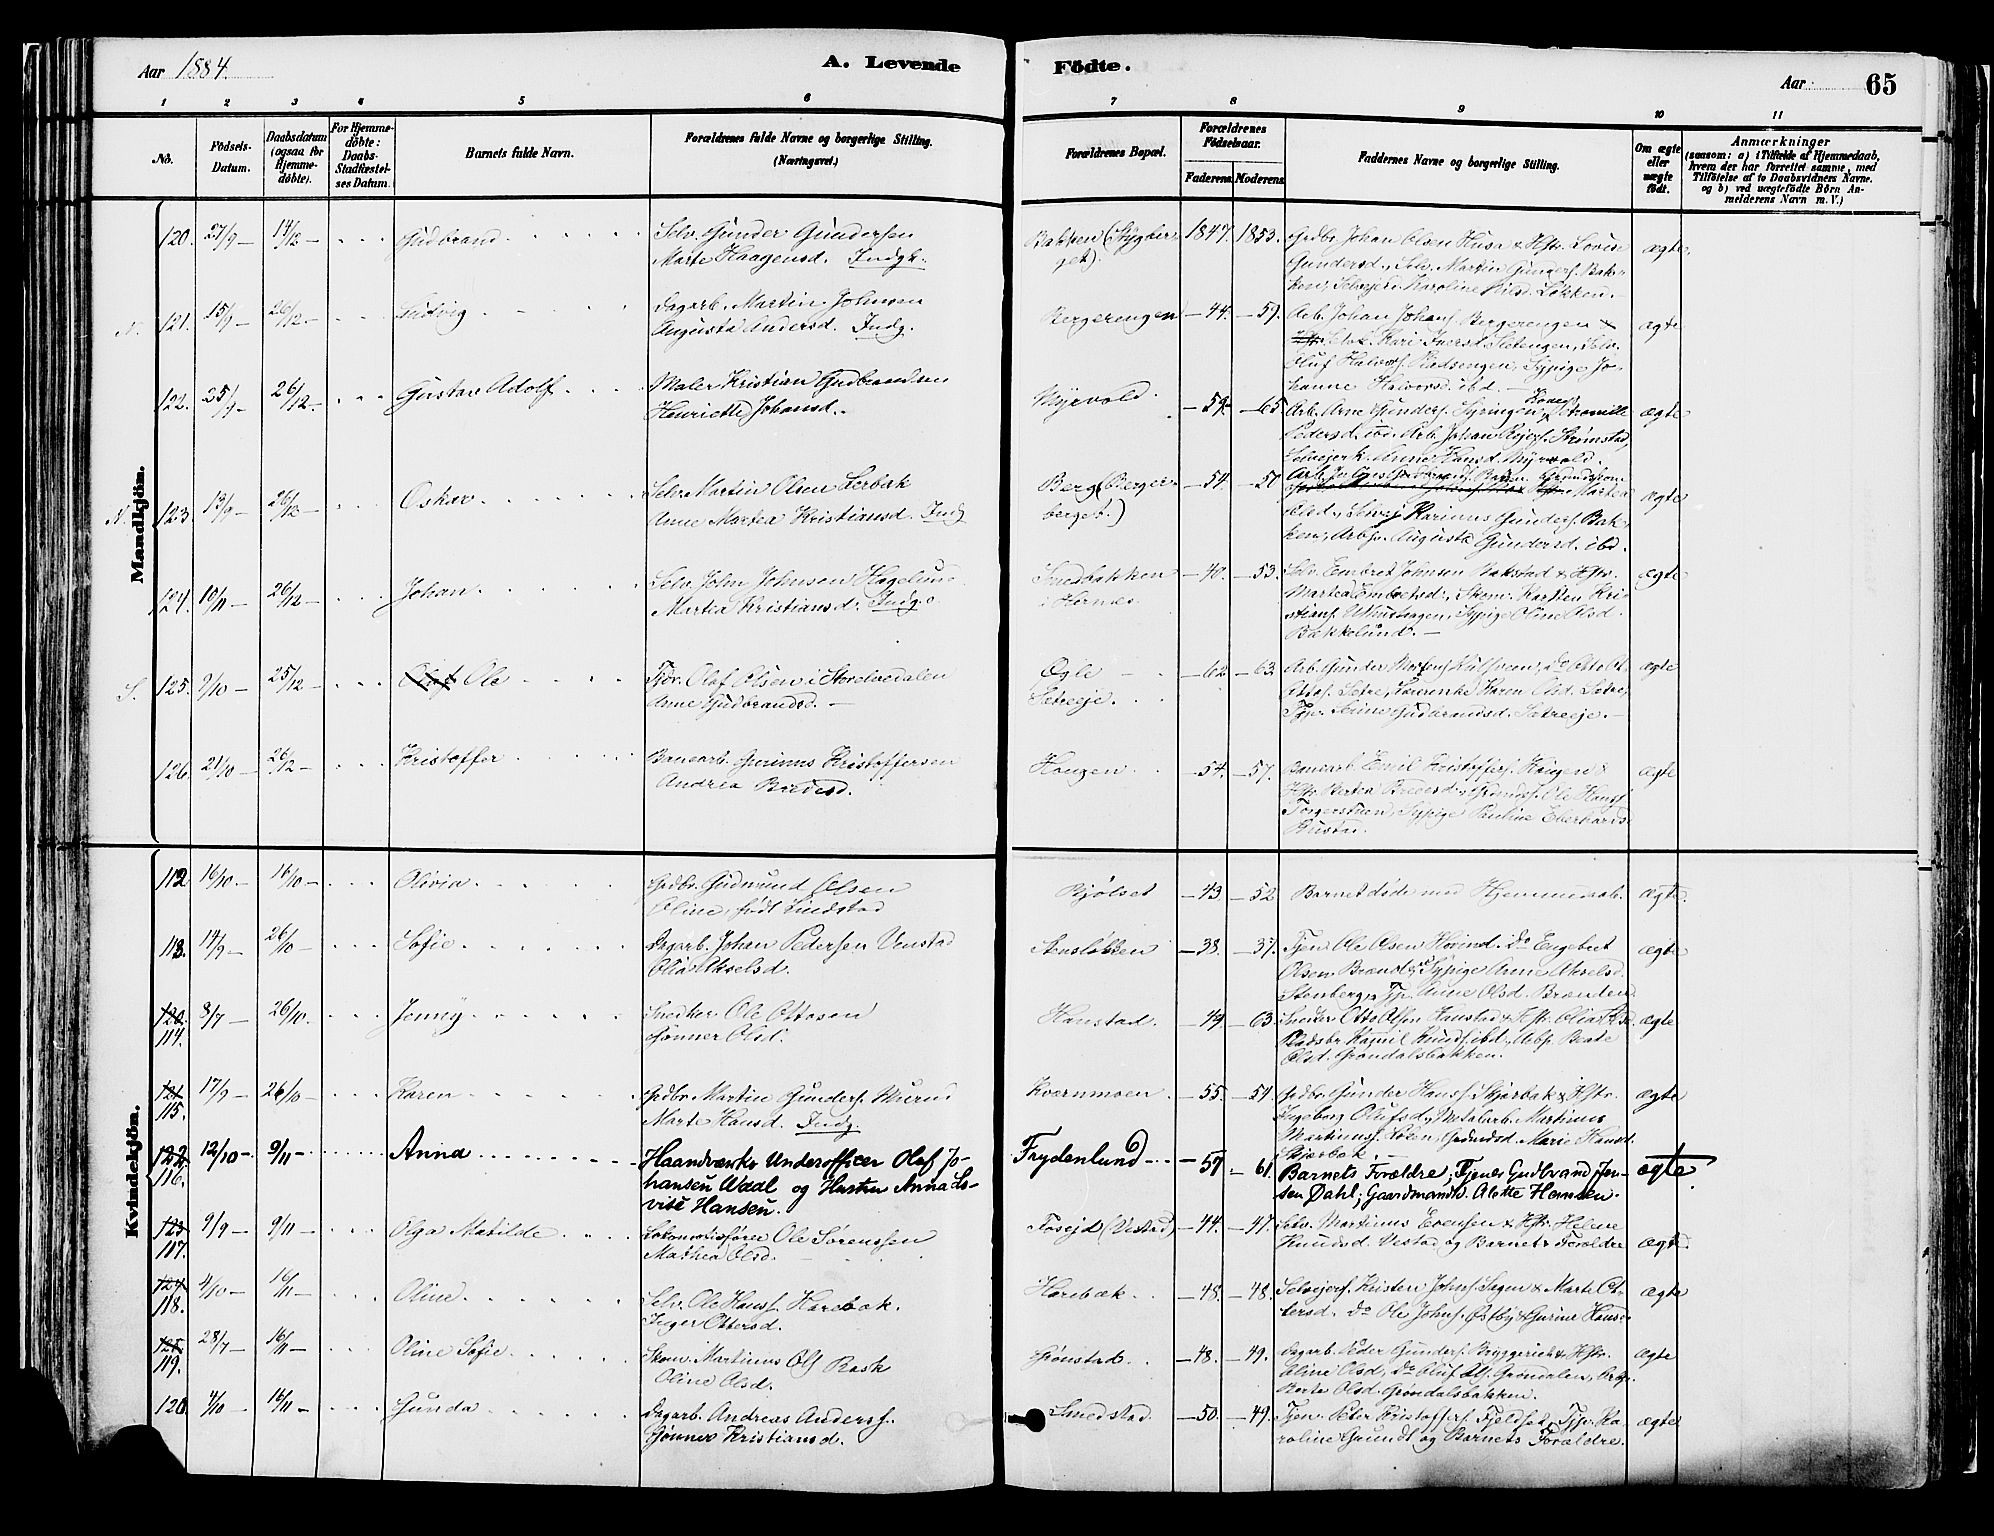 Aar 1884.
A. Levende Födte.
Aar 65
1 2 3 4 5 6 7 8 9 10 11
No.
Födsels-Datum.
Daabsdatum (ogsaa for Hjemme-döbte).
For Hjemme-döbte: Daabs-Stadfæstel-ses Datum.
Barnets fulde Navn.
Forældrenes fulde Navne og borgerlige Stilling.
(Næringsvei.)
Forældrenes Bopæl.
Forældrenes Födselsaar.
Faderens. Moderens.
Faddernes Navne og borgerlige Stilling.
Om ægte eller uægte födt.
Anmærkninger
(saasom: a) i Tilfælde af Hjemmedaab,
hvem der har forrettet samme, med
Tilföielse af to Daabsvidners Navne.
og b) ved uægtefödte Börn An-
melderens Navn m. V.)
Mandkjön.
120. 27/9 14/12 Gudbrand
Selv. Gunder Gundersen
Marte Haagensd. Indg.
Bakken (Stygber-
get).
1847. 1853.
Grdbr. Johan Olsen Husa & Hstr. Lovise
Gundersd., Selv. Martin Gunders. Bak-
ken, Karoline Løkken.
ægte.
N. 121. 15/9 26/12 Ludvig
Dagarb. Martin Johnsen
Augusta Andersd. Indg.
Bergerengen 44. 59.
Arb. Johan Johans. Bergerengen &
Kari Iversd. Sletengen, Selv.
Oluf Halvors. Sypige Jo-
hanne Halvorsd. ibd.
ægte
122. 25/9 26/12 Gustav Adolf
Maler Kristian Gudbrandsen
Henriette Johansd.
Myrvold. 59. 65
Arb. Arne Gunders. Kone
Pedersd. ibd. Arb. Johan Strømstad,
Anne Hansd. Myrvold.
ægte
N. 123. 13/9 26/12 Oskar
Selv. Martin Olsen Lerbak
Anne Martea Kristiansd. Indg
Berg (Berger-
berget.)
54. 57
Martea
Olsd., Selvej. Karinus Gunders. Bak-
ken, Arbp. Augusta Gundersd. ibd.
ægte
124. 10/11 26/12 Johan
Selv. John Johnsen Hagelund
Martea Kristiansd. Indg.
Snedbakken
i Hernes.
40. 53.
Selv. Embret Johnsen Bakstad & Hstr.
Martea Embretsd., Skom. Karsten Kri-
stians. Sypige Oline Olsd.
Bakkelund.
ægte
S. 125. 9/10 25/12 Olaf Ole
Tjdr. Olaf Olsen i Storelvedalen
Anne Gudbrandsd.
Øgle
Sætreeje.
62. 63
Arb. Gunder do Otto Ot-
tos. Sætre, Karen Olsd. Sætre,
Tjp. Serine Gudbrandsd. Sætreeje.
ægte
126. 21/10 26/12 Kristoffer
Banearb. Gunnus Kristoffersen
Andrea Bredesd.
Haugen 54. 57.
Banearb. Emil Kristoffers. Haugen &
Hstr. Bertea Bredesd., Ole Hans.
Sypige Pauline Eberhards.
Rustad.
ægte
Kvindekjön.
112 16/10 16/10 Olivia
Grdbr. Gudmund Olsen
Oline, født Lindstad
Kjølset 43 52
Barnet døde med Hjemmedaab.
ægte.
113. 14/9 26/10 Sofie
Dagarb. Johan Pedersen Ulvstad
Olia Akselsd.
Stensløkken 38. 37.
Tjen. Ole Olsen Hovind. do Engebret
Olsen Brænden, Sypige Anne Akselsd.
Stenberg, Tjp. Anne Olsd. Brænden.
ægte
120. 114. 8/7 26/10 Jenny
Snedker Ole Ottosen
Gønner Olsd.
Hanstad. 49. 63.
Snedker Otto Olsen Hanstad & Hstr. Olia Olsd.
Pladsbr. Knuds. ibd., Arbp. Beate
Olsd. Grøndalsbakken.
ægte
121 115. 17/9 26/10 Karen
Grdbr. Martin Gunders. Murud
Marte Hansd. Indg.
Kvernmoen 55. 54
Grdbr. Gunder Hans. Skjærbak & Hstr.
Ingeborg Olufsd., Metalarb. Martinus
Martinuss. Loken, Marie Hansd.
Skjærbak
ægte
122 116. 12/10 9/11 Anna
Haandværks Underofficer Olaf Jo-
hansen Waal og Hustru Anna Lo-
vise Hansen.
Frydenlund 57 61.
Barnets Forældre; Tjenes Gudbrand Jen-
sen Dahl; Gaardmandsd. Alette Hansen.
ægte
123 117. 9/9 9/11 Olga Matilde
Lokomotivfører Ole Sørenssen
Mathea Olsd.
Foseid (Vestad) 44. 47.
Selv. Martinus Evensen & Hstr. Helene
Knudsd. Vestad og Barnets Forældre
ægte.
124 118. 4/10 16/11 Oline
Selv. Ole Hanss. Harebak.
Inger Ottersd.
Harebæk 48. 48.
Selvejer Kristen Johns. Sagen & Marte Ot-
tersd. do Ole Johns. Østby & Gurine Hansd.
ægte
125 119. 28/7 16/11 Oline Sofie
Skom. Martinus Ols. Rask
Oline Olsd.
Grønstad 48. 49.
Dagarb. Peder Gunders. Bryggerict & Hstr.
Oline Olsd., do Oluf Ols. Grøndalen, Arbp.
Berte Olsd. Grøndalsbakken.
ægte
120. 4/10 16/11 Gunda
Dagarb. Andreas Anders.
Gønner Kristiansd.
Smedstad. 50. 49.
Tjen. Peter Kristoffers. Fjeldset, Tjp. Ka-
roline Grundt og Barnets Forældre.
ægte